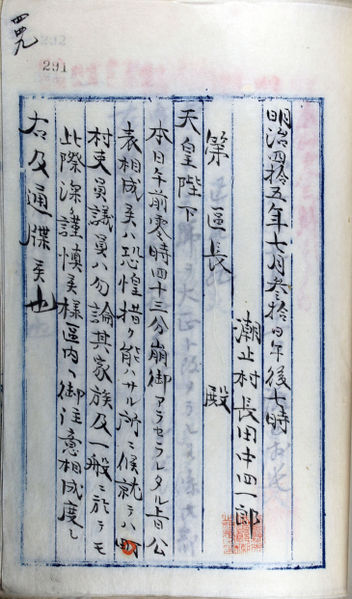 四四九
291
明治四拾五年七月叁拾日午後七時
潮止村長田中四一郎
第 区長 殿
天皇陛下
本日午前零時四十三分崩御アラセラレタル旨公
表相成候ハ恐惶措ク能ハサル所ニ候就テハ
村吏員議員ハ勿論其家族及一般ニ於テモ
此際深謹慎候様区内ヘ御注意相成度
右及通牒候也